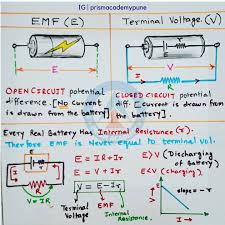 IG| prismacademypune
EMF (E)
Terminal Voltage (V)
E
V
I
R
OPEN CIRCUIT potential
difference. [No current
is drawn from the battery]
CLOSED CIRCUIT potential
diff. [current is drawn from
the battery].
Every Real Battery has Internal Resistance (r).
Therefore EMF is Never equal to terminal vol.
E
r
I
R
V = IR
E = IR + Ir
E = V + Ir
V = E - Ir
Terminal
Voltage
EMF
Internal
Resistance.
E > V (Discharging
of Battery)
E < V (charging).
V
slope = -r
I →